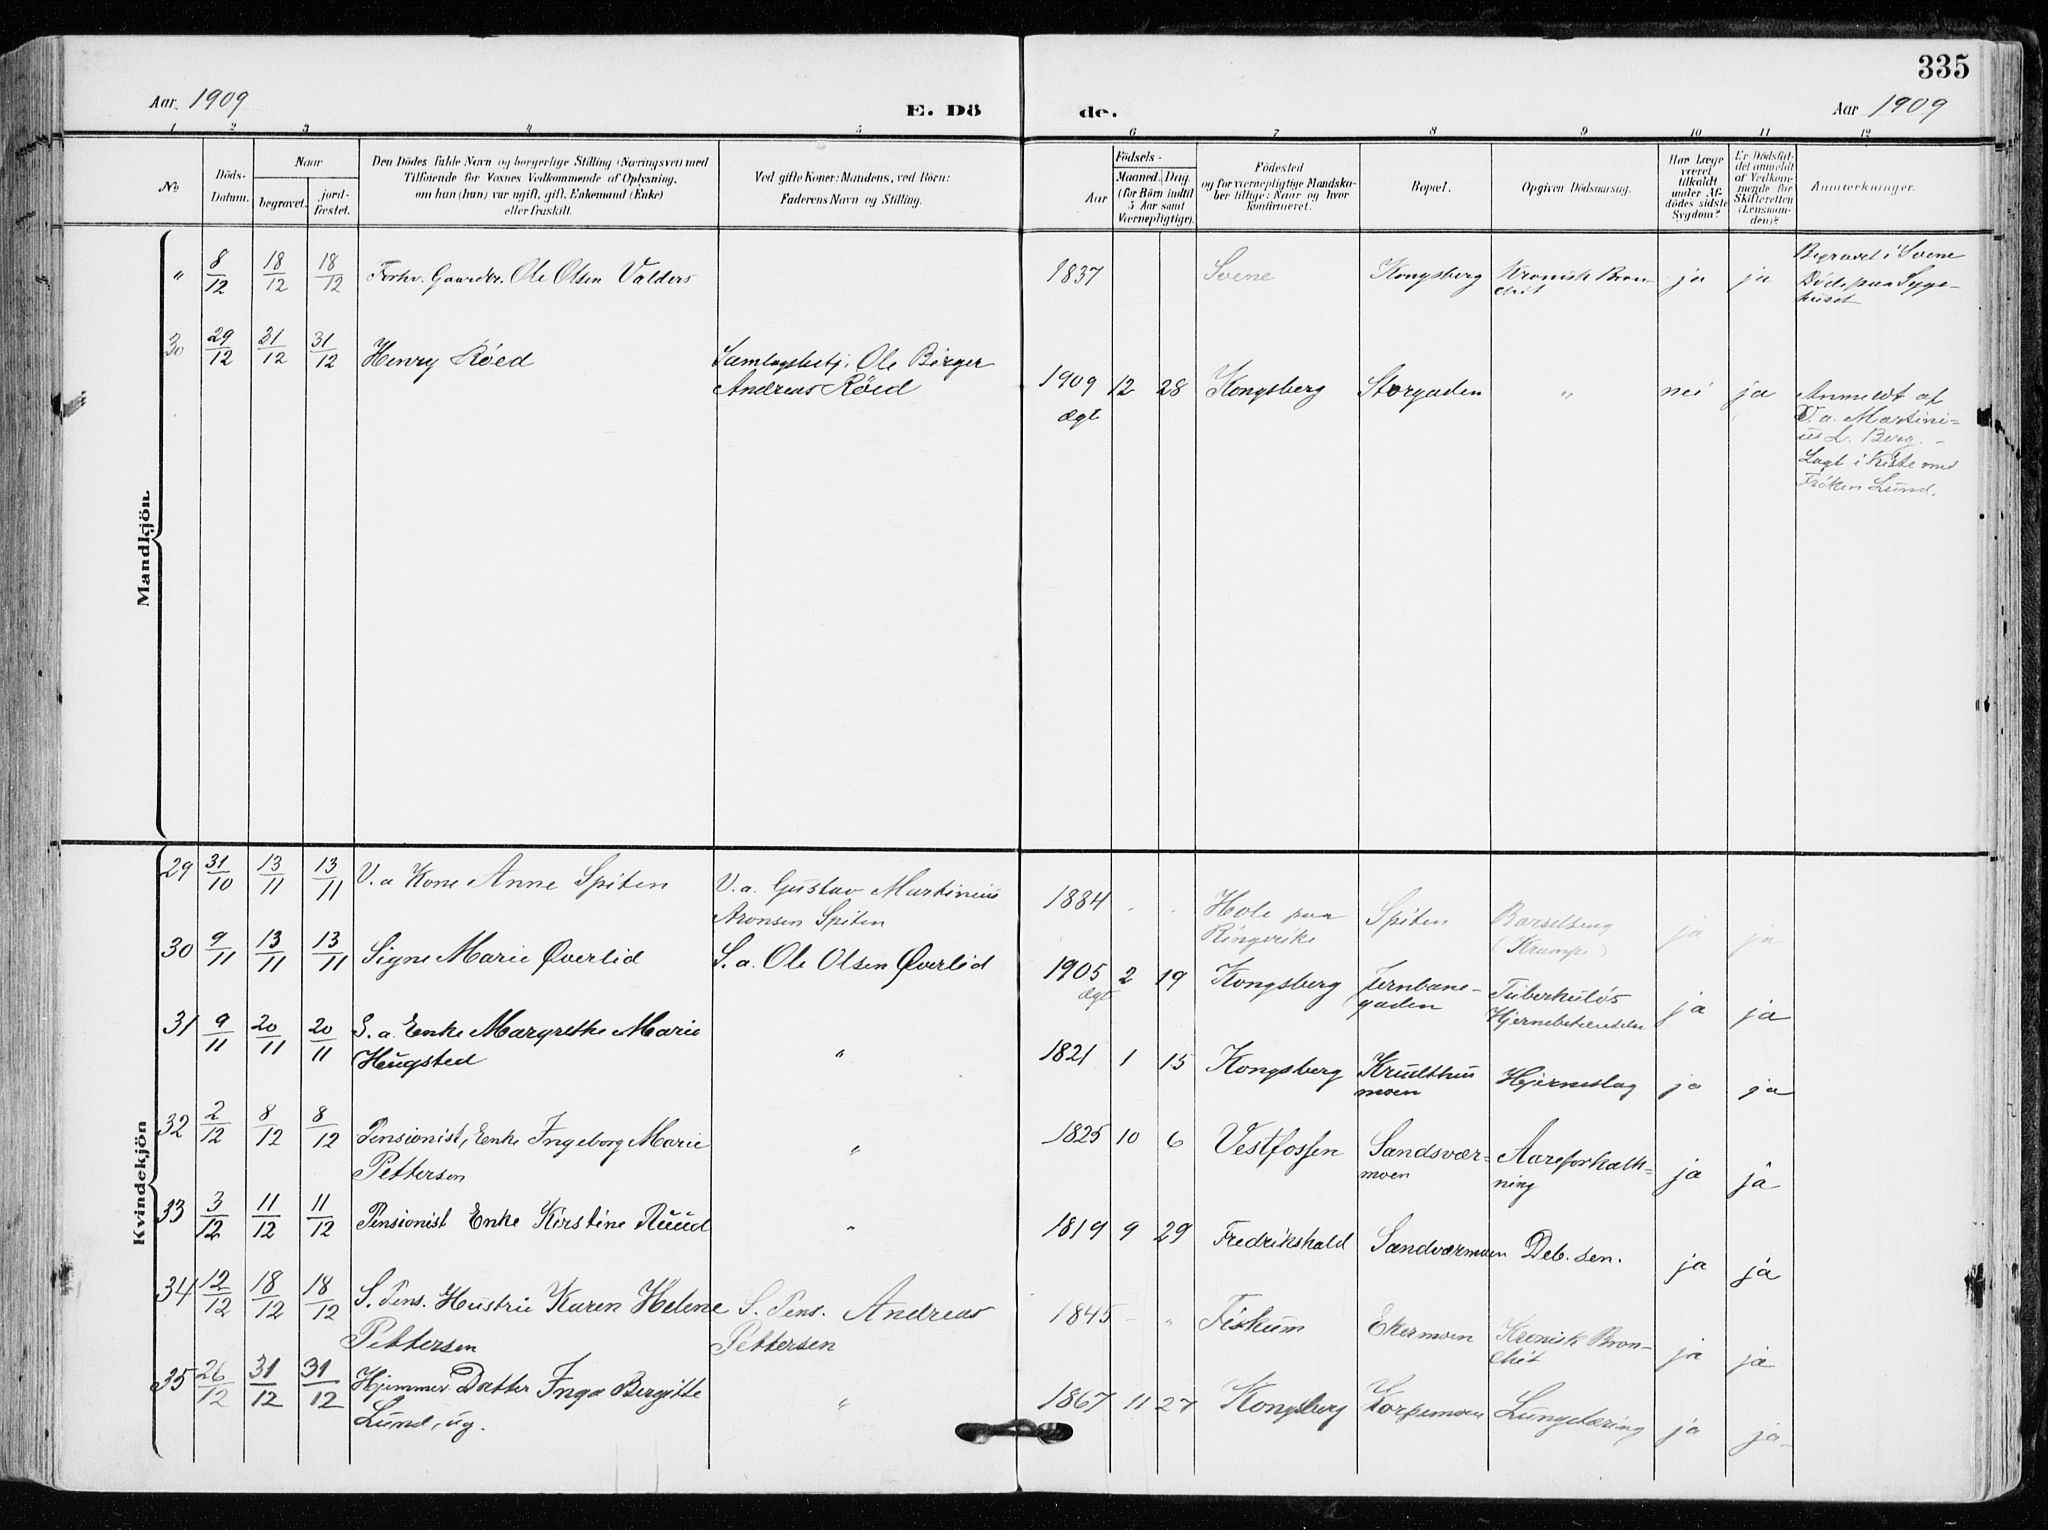 335
Aar. 1909
E. Dö
de.
Aar 1909
1 2 3 4 5 6 7 8 9 10 11 12
No
Döds-Datum.
Naar
begravet.
jord-fæstet.
Den Dödes fulde Navn og borgerlige Stilling (Næringsvei) med
Tilföiende for Voxnes Vedkommende af Oplysning,
om han (hun) var ugift, gift, Enkemand (Enke)
eller fraskilt.
Ved gifte Koner: Mandens, ved Börn:
Faderens Navn og Stilling.
Födsels-
Aar
Maaned. Dag
(for Börn indtil
5 Aar samt
Værnepligtige).
Födested
og for værnepligtige Mandska-
ber tillige: Naar og hvor
konfirmeret.
Bopæl.
Opgiven Dödsaarsag.
Har Læge
været
tilkaldt
under Af-
dödes sidste
Sygdom?
Er Dödsfal-
det anmeldt
af Vedkom-
mende for
Skifteretten
(Lensman-
den)?
Anmerkninger.
Mandkjön.
" 8/12 18/12 18/12 Forhv. Gaardbr. Ole Olsen Valders 1837 Svene Kongsberg Kronisk Bron-
chit ja ja Begravet i Svene
Döde paa Syge-
huset
30 29/12 31/12 31/12 Henry Röed Samlagsbetj. Ole Börger
Andreas Röed 1909 12 28 Kongsberg Storgaden " nei ja Anmeldt af
ægt V. a. Martini-
us L. Berg. -
Lagt i Kiste med
Fröken Lund.
Kvindekjön
29 31/10 13/11 13/11 V. a Kone Anne Spiten V. a. Gustav Martinius
Aronsen Spiten 1884 . . Hole paa
Ringerike Spiten Barselseng
(Krampe) ja ja
30 9/11 13/11 13/11 Signe Marie Øverlid S. a. Ole Olsen Øverlid 1905 2 19 Kongsberg Jernbane-
gaden Tuberkulös
ægt Hjernebetændelse ja ja
31 9/11 20/11 20/11 S. a. Enke Margrethe Marie
Haugsted " 1821 1 15 Kongsberg Krudthus
moen Hjerneslag ja ja
32 2/12 8/12 8/12 Pensionist, Enke Ingeborg Marie
Pettersen " 1825 10 6 Vestfossen Sandsvær-
moen Aareforkalk-
ning ja ja
33 3/12 11/12 11/12 Pensionist Enke Kirstine Ruud " 1819 9 29 Fredrikshald Sandværmoen Deb. sen. ja ja
34 12/12 18/12 18/12 S. Pens. Hustru Karen Helene
Pettersen S. Pens. Andreas
Pettersen 1845 - " Fiskum Ekermoen Kronisk Bron-
chit ja ja
35 26/12 31/12 31/12 Hjemmev. Datter Inga Bergitte
Lund, ug. " 1867 11 27 Kongsberg Korpemoen Lungetæring ja ja